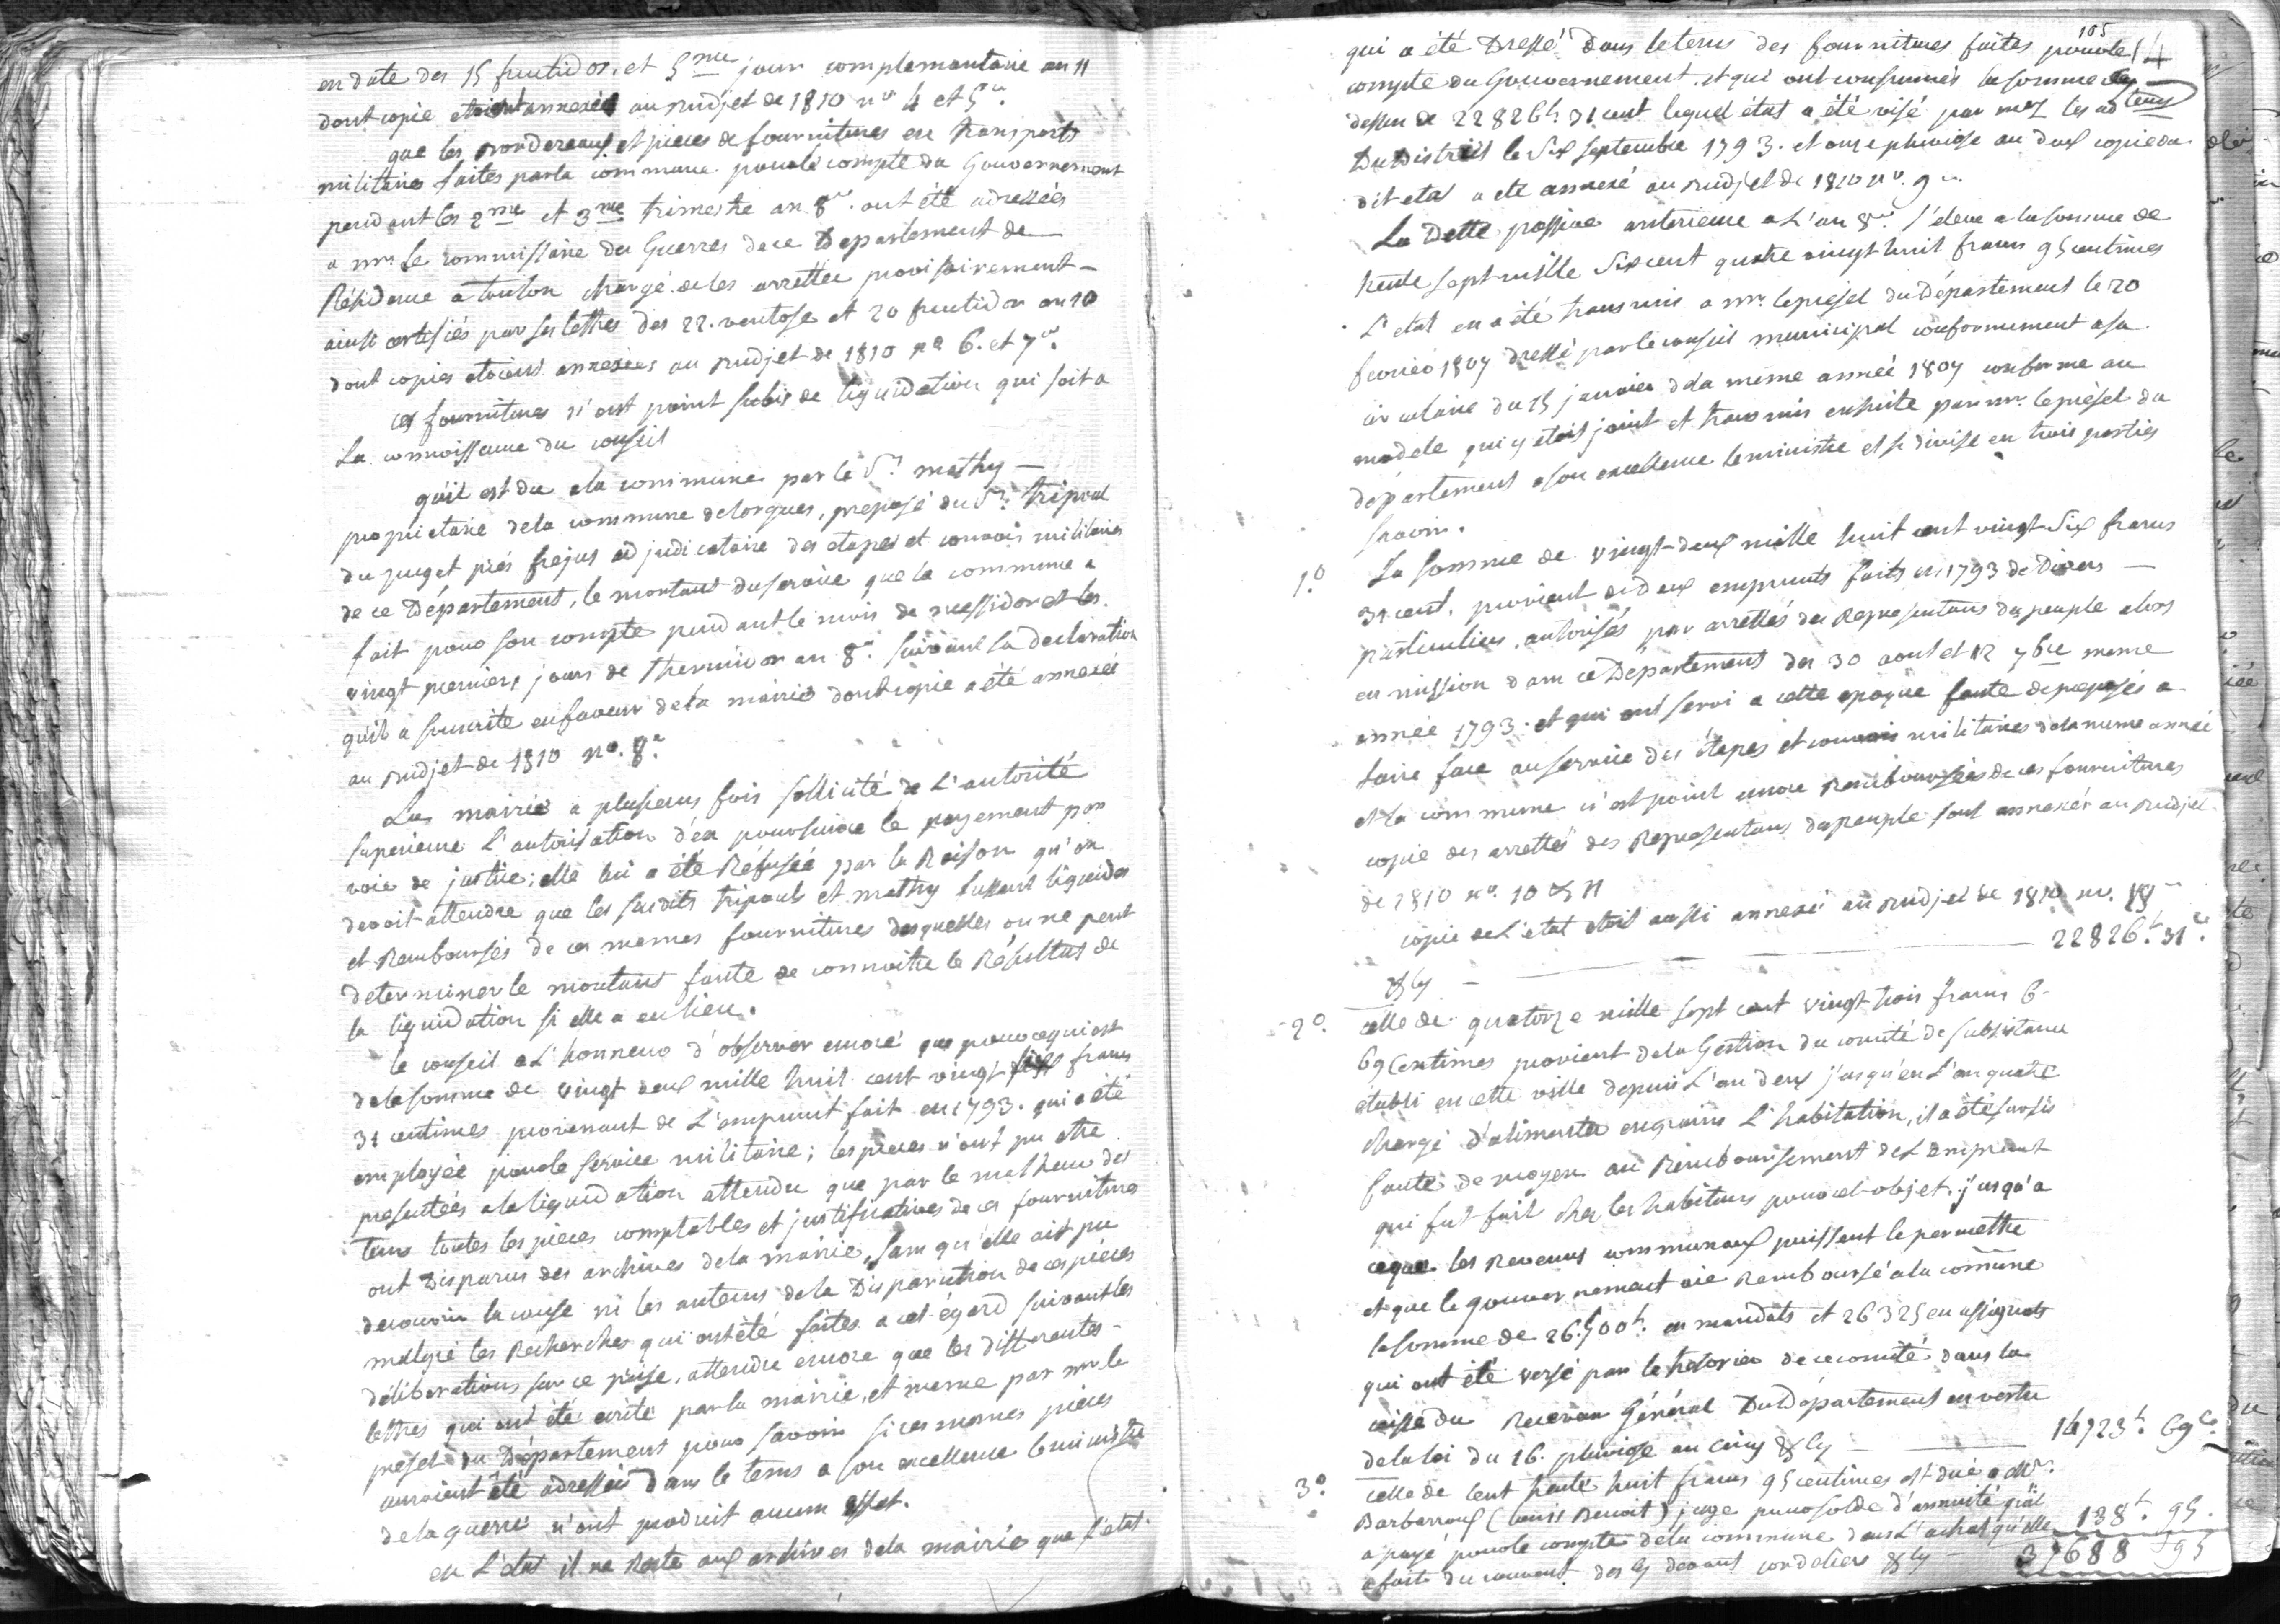 en date des 15 fructidor, et 5me jour complemantaire an 11
dont copie etoient annexées au Budjet de 1810 nos 4 et 5.
que les Bordereaux et pieces de fournitures en transports
militaires faites par la commune pour le compte du Gouvernement
pendant les 2me et 3me trimestre an 8e. ont été adressées
a mr. le commissaire des Guerres de ce Departement de
Résidence a toulon chargé de les arretter provisoirement
ainsi certifiés par ses lettres des 22. ventose et 20 fructidor an 10
dont copies etoient annexées au Budjet de 1810 no 6. et 7.
ces fournitures n'ont point subis de liquidation qui soit a
La connoissance du conseil
qu'il est du a la commune par le Sr. mathy
proprietaire de la commune de lorgues, preposé du Sr. tripoul
du puget près frejus adjudicataire des etapes et convois militaires
de ce Département, le montant du service que la commune a
fait pour son compte pendant le mois de messidor et les
vingt premiers jours de thermidor an 8e. suivant la declaration
qu'il a souscrite en faveur de la mairie dont copie a été annexée
au Budjet de 1810 no. 8.
La mairie a plusieurs fois sollicité de L'autorité
superieure L'autorisation d'en poursuivre le payement par
voie de justice; elle lui a été Réfusée par la Raison qu'on
devoit attendre que les susdits tripoul et mathy fussent liquidés
et Remboursés de ces memes fournitures desquelles on ne peut
determiner le montant faute de connoitre le Résultat de
la liquidation si elle a eu lieu.
le conseil a L'honneur d'observer encore que pour ce qui est
de la somme de vingt deux mille huit cent vingt six francs
31 centimes provenant de L'emprunt fait en 1793. qui a été
employée pour le service militaire; les pieces n'ont pu etre
presentées a la liquidation attendu que par le malheur des
tems toutes les pieces comptables et justificatives de ces fournitures
ont Disparus des archives de la mairie, sans qu'elle ait pu
decouvrir la cause ni les auteurs de la Disparution de ces pièces
malgré les Recherches qui ont été faites a cet égard suivant les
déliberations sur ce prise, attendu encore que les differentes
lettres qui ont été ecrite par la mairie, et meme par mr. le
prefet du Département pour savoir si ces memes pieces
auroient été adressées dans le tems a son excellence le ministre
de la guerre n'ont produit aucun effet.
en L'etat il ne Reste aux archives de la mairie que l'etat
105
14
qui a été Dressé dans le tems des fournitures faites pour le
compte du Gouvernement. et qui ont consumés la somme cy
dessus de 22826f. 31 cent lequel état a été visé par mrs les adteurs
Du District le six septembre 1793. et onze pluviose an deux copie du
dit etat a eté annexé au Budjet de 1810 no. 9
La Dette passive anterieure a L'an 8e. s'éleve a la somme de
trente sept mille six cent quatre vingt huit francs 95 centimes
L'etat en a été transmis a mr. le prefet du Département le 20
fevrier 1807 dressé par le conseil municipal conformement a sa
circulaire du 15 janvier de la meme année 1807 conforme au
modele qui y etoit joint et transmis ensuite par mr. le préfet du
département a son excellence le ministre et se divise en trois parties
savoir.
1o. La somme de vingt-deux mille huit cent vingt-six francs
31 cent. provient de Deux emprunts faits en 1793 de Divers
particuliers, autorisés par arrettés des Representans du peuple alors
en mission dans ce Departement des 30 aoust et 12 7bre meme
année 1793. et qui ont servi a cette epoque faute de preposés a
faire face au service des étapes et convois militaires de la meme année
et la commune n'est point encore Remboursées de ces fournitures
copie des arrettés des Representans du peuple sont annexés au Budjet
de 1810 no. 10 & 11
copie de L'etat etoit aussi annexé au Budjet de 1810 no.
&cy 22826f. 31c.
2o. celle de quatorze mille sept cent vingt trois francs
69 Centimes provient de la Gestion du comité de subsistance
établi en cette ville depuis L'an deux jusqu'en L'an quatre
chargé d'alimenter en grains L'habitation, il a été sursis
faute de moyen au Remboursement de L'emprunt
qui fut fait chez les habitans pour cet objet. jusqu'a
ceque les Revenus communaux puissent le permettre
et que le gouvernement aie Remboursé a la commune
la somme de 26500f. en mandats et 26325 en assignats
qui ont été versé par le trésorier de ce comité dans la
caisse du Receveur Général Du Département en vertu
de la loi du 16. pluviose an cinq &cy 14723f. 69c.
3o. celle de cent trente huit francs 95 centimes est due a Mr.
Barbarroux (louis Benoit) juge pour solde d'annuité qu'il
a payé pour le compte de la commune dans L'achat qu'elle 138f. 95.
a fait du couvent des cy devant cordeliers &cy 37688 95